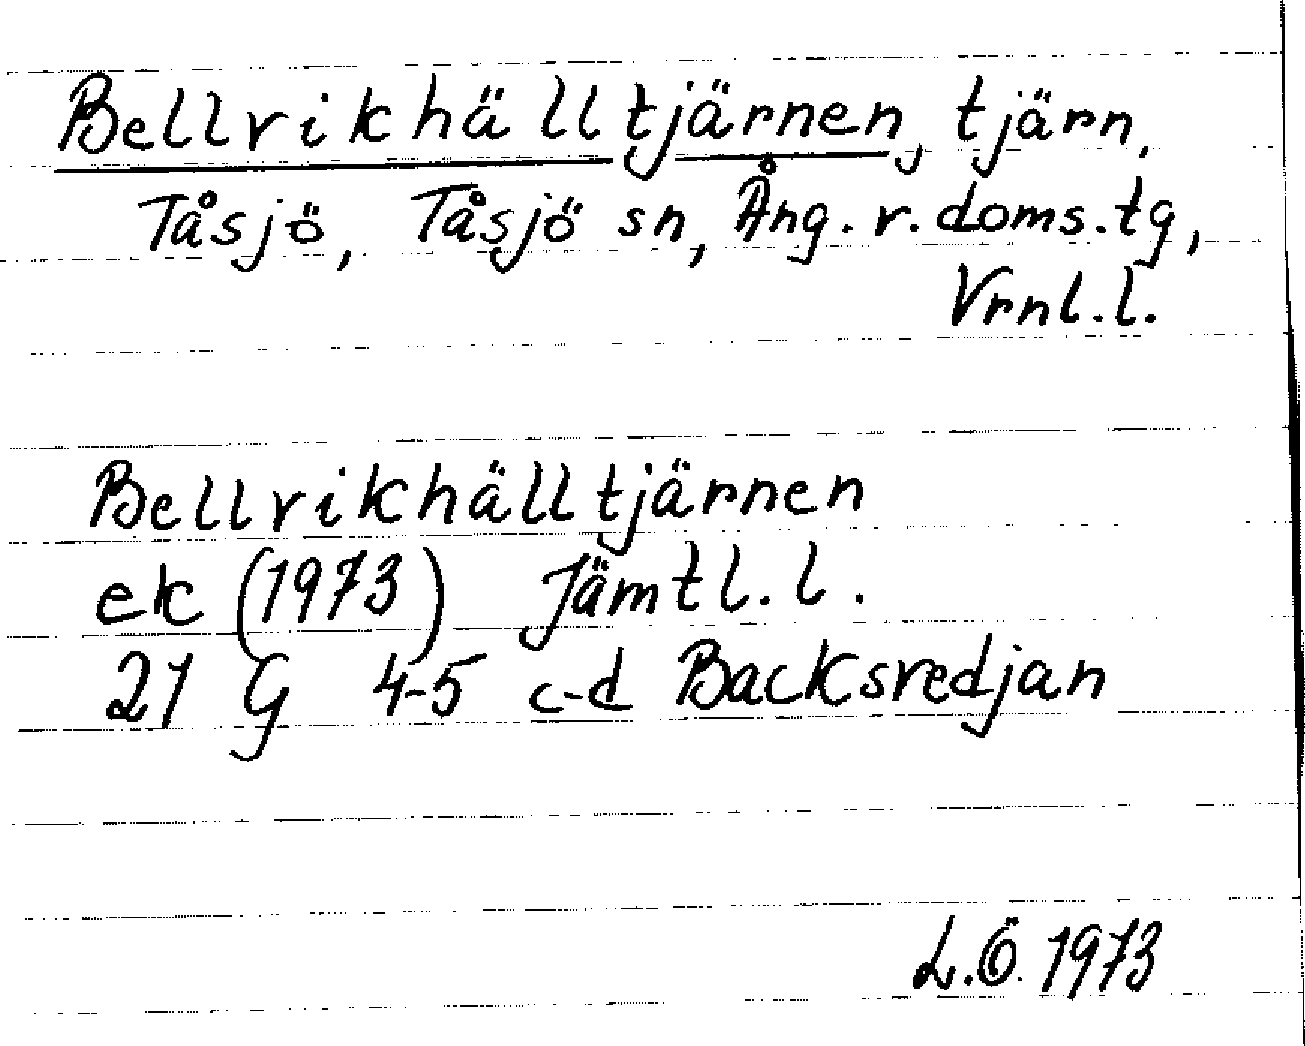 Bellvikhälltjärnen, tjärn,
Tåsjö, Tåsjö sn, Ång. v. doms. tg,
Vrnl. l.
Bellvikhälltjärnen
ek (1973) Jämtl. l.
21 G 4-5 c-d Backsvedjan
L.Ö. 1973